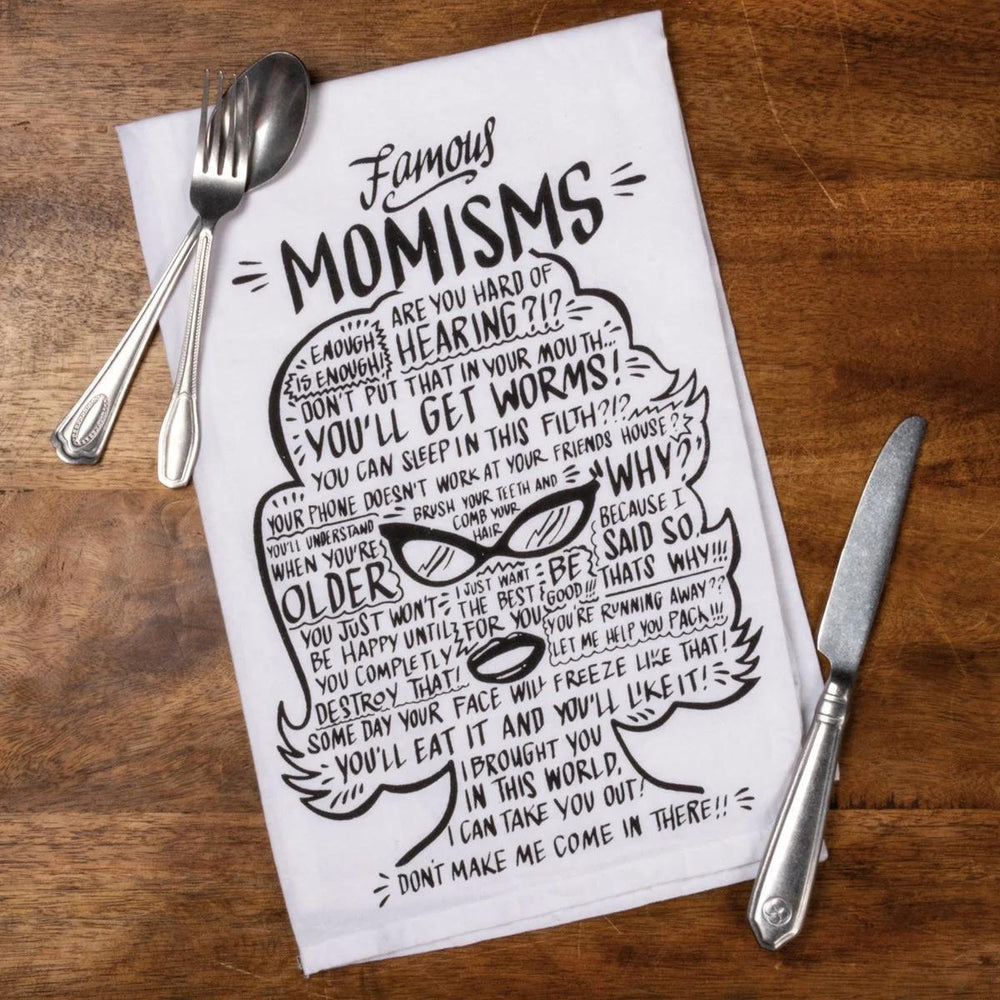 Famous
MOMISMS
ARE YOU HARD OF
HEARING?!?
ENOUGH
IS ENOUGH!
DON'T PUT THAT IN YOUR MOUTH...
YOU'LL GET WORMS!
YOU CAN SLEEP IN THIS FILTH?!?
YOUR PHONE DOESN'T WORK AT YOUR FRIENDS HOUSE?
BRUSH YOUR TEETH AND
COMB YOUR
HAIR
WHY?
BECAUSE I
SAID SO.
THATS WHY!!!
YOU'LL UNDERSTAND
WHEN YOU'RE
OLDER
I JUST WANT
THE BEST
FOR YOU
BE
GOOD!!!
YOU JUST WON'T
BE HAPPY UNTIL
YOU COMPLETLY
DESTROY THAT!
YOU'RE RUNNING AWAY??
LET ME HELP YOU PACK!!!
SOME DAY YOUR FACE WILL FREEZE LIKE THAT!
YOU'LL EAT IT AND YOU'LL LIKE IT!
I BROUGHT YOU
IN THIS WORLD,
I CAN TAKE YOU OUT!
DON'T MAKE ME COME IN THERE!!